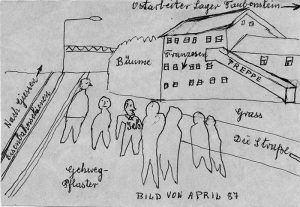 Ostarbeiter Lager Taubenstein
Franzosen
Bäume
TREPPE
Nach Giessen
Eisenbahnschienen
Gehweg-
Pflaster
Grass
Die Straße
BILD VON APRIL 87